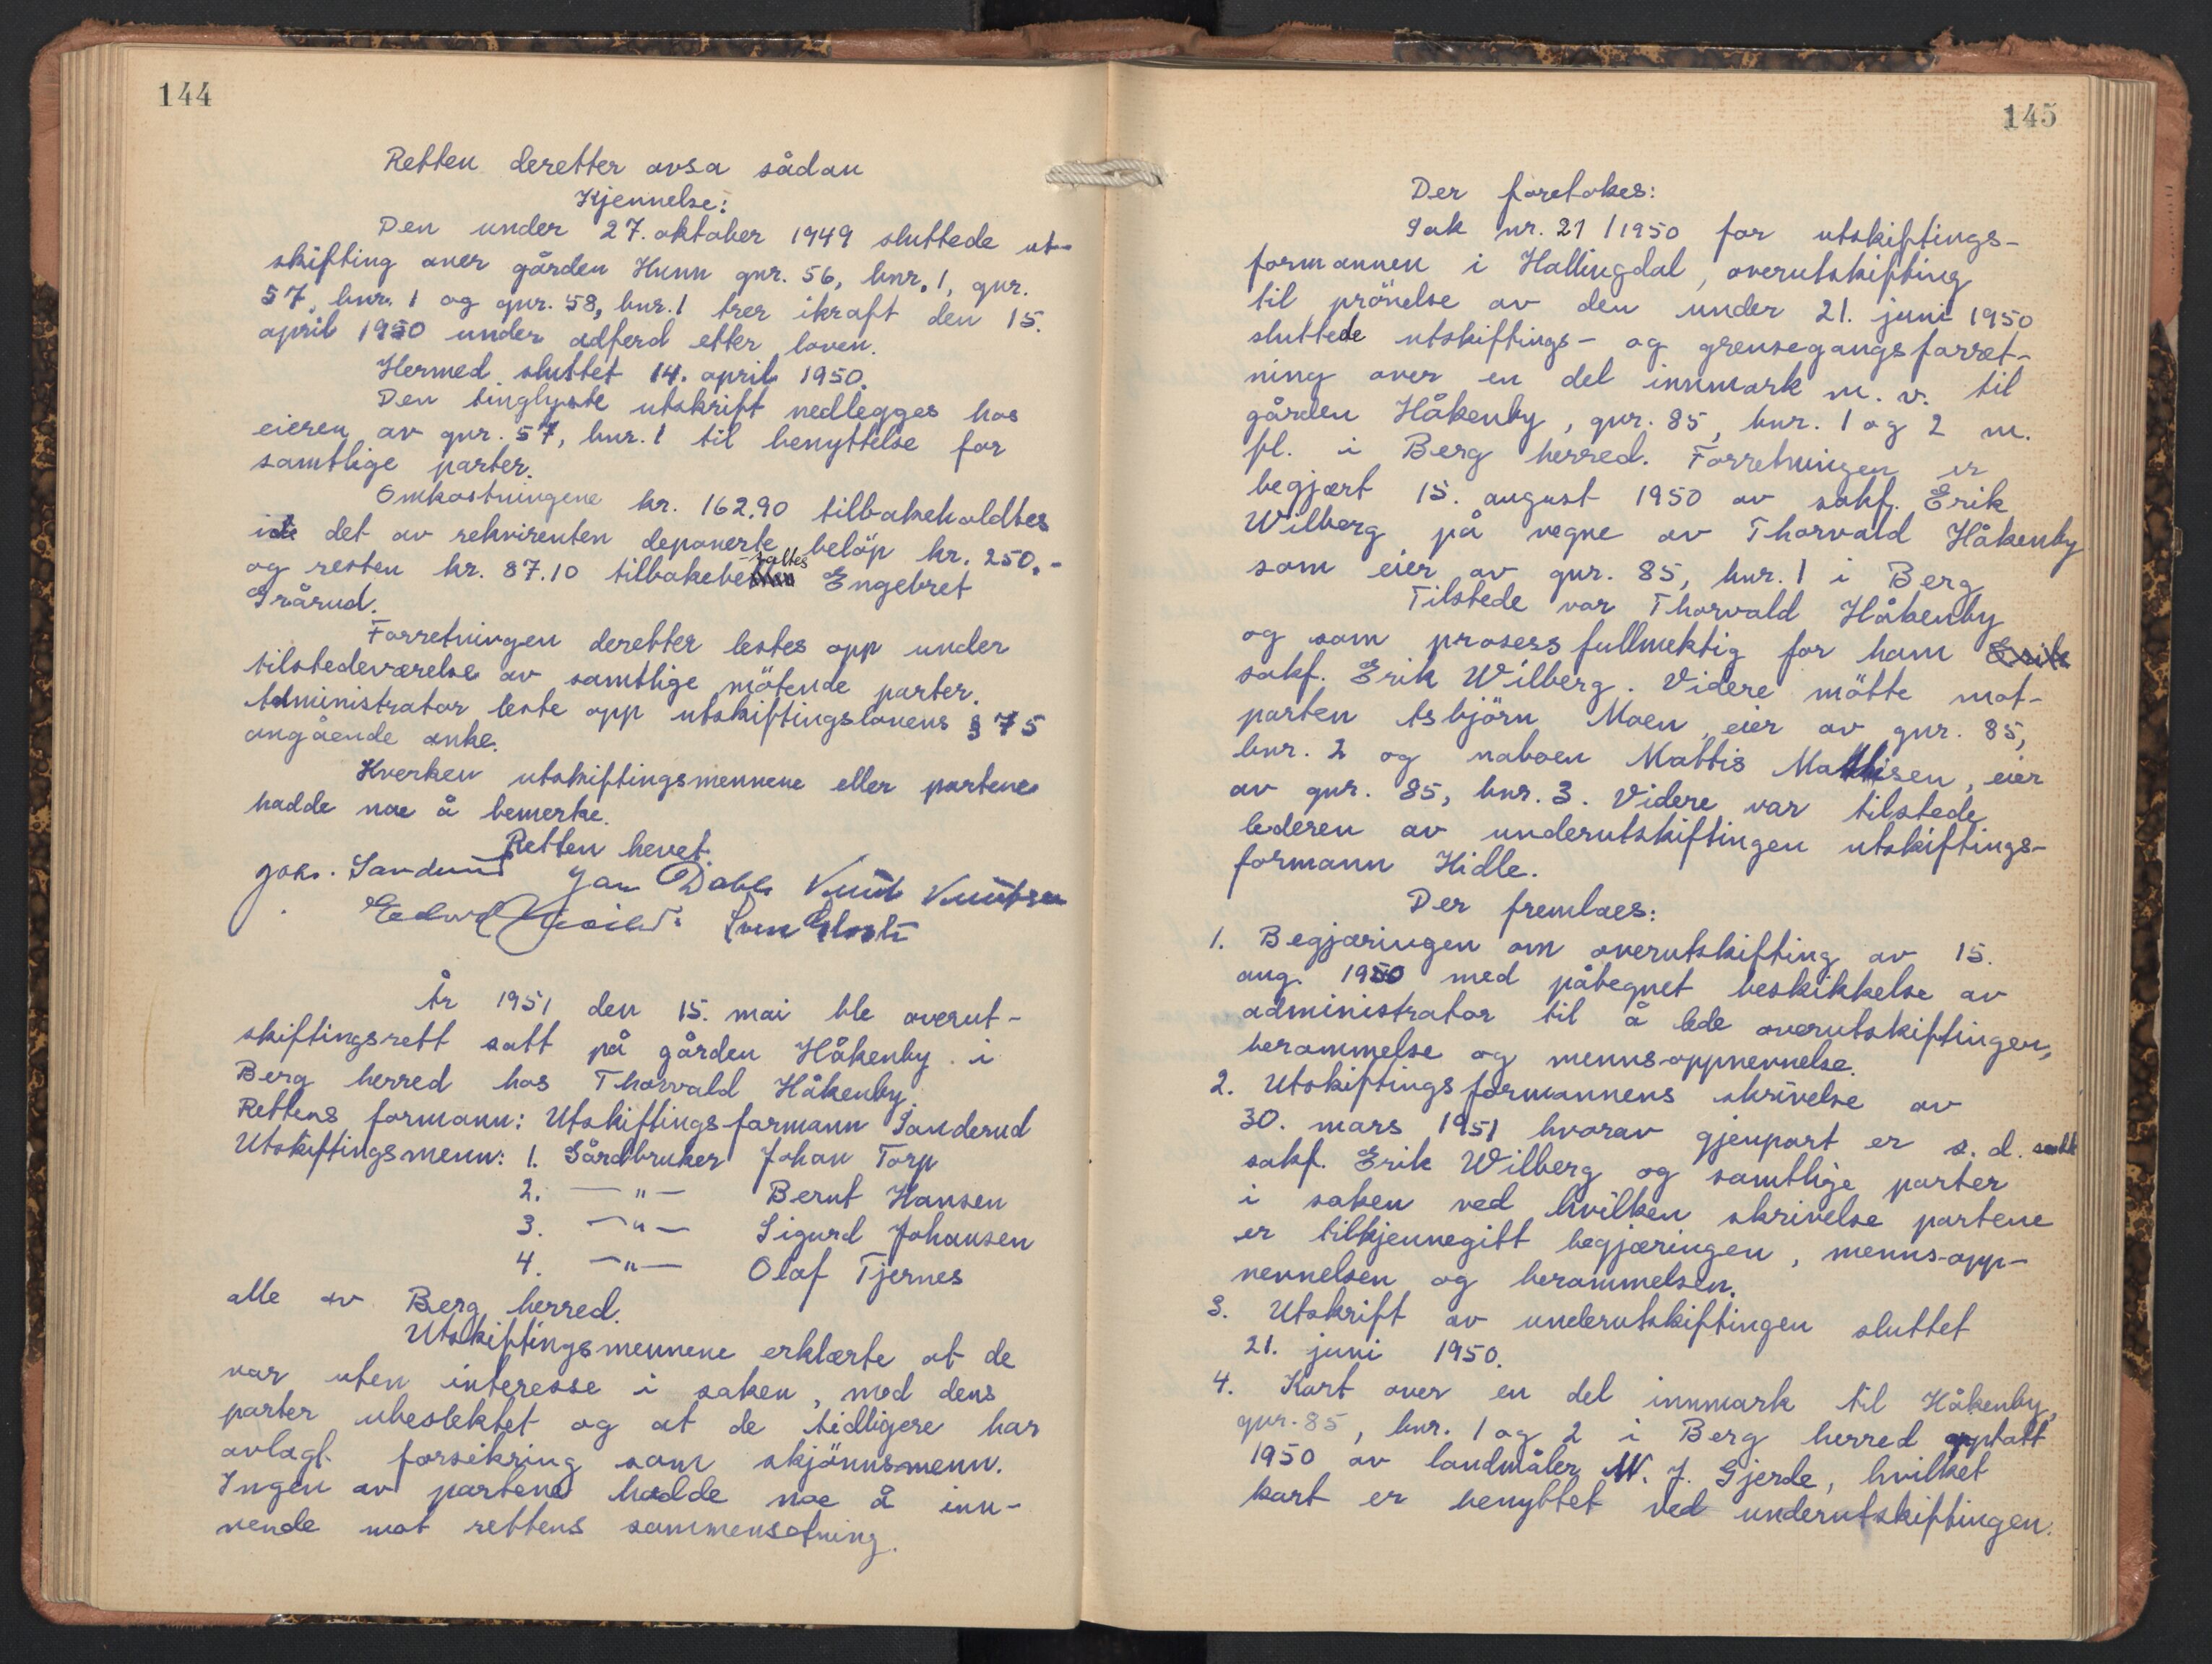 144
Retten deretter avsa sådan
Kjennelse:
Den under 27. oktober 1949 sluttede ut-
skifting over gården Hunn gnr. 56, bnr. 1, gnr.
57, bnr. 1 og gnr. 58, bnr. 1 trer ikraft den 15.
april 1950 under adferd etter loven.
Hermed sluttet 14. april 1950.
Den tinglyste utskrift nedlegges hos
eieren av gnr. 57, bnr. 1 til benyttelse for
samtlige parter.
Omkostningene kr. 162.90 tilbakeholdtes
i det av rekvirenten deponerte beløp kr. 250.-
og resten kr. 87.10 tilbakebetaltes Engebret
Grårud.
Forretningen deretter lestes opp under
tilstedeværelse av samtlige møtende parter.
Administrator leste opp utskiftingslovens § 75
angående anke.
Hverken utskiftingsmennene eller partene
hadde noe å bemerke.
Retten hevet.
Johs. Sanderud Jan Dahl Knut Knutsen
År 1951 den 15. mai ble overut-
skiftingsrett satt på gården Håkenby i
Berg herred hos Thorvald Håkenby.
Rettens formann: Utskiftingsformann Sanderud
Utskiftingsmenn: 1. Gårdbruker Johan Torp
2. —"— Bernt Hansen
3. —"— Sigurd Johansen
4. —"— Olaf Tjernes
alle av Berg herred.
Utskiftingsmennene erklærte at de
var uten interesse i saken, med dens
parter ubeslektet og at de tidligere har
avlagt forsikring som skjønnsmenn.
Ingen av partene hadde noe å inn-
vende mot rettens sammensetning.
145
Der foretokes:
Sak nr. 21/1950 for utskiftings-
formannen i Hallingdal, overutskifting
til prøvelse av den under 21. juni 1950
sluttede utskiftings- og grensegangsforret-
ning over en del innmark m. v. til
gården Håkenby, gnr. 85, bnr. 1 og 2 m.
fl. i Berg herred. Forretningen er
begjært 15. august 1950 av sakf. Erik
Wilberg på vegne av Thorvald Håkenby
som eier av gnr. 85, bnr. 1 i Berg
Tilstede var Thorvald Håkenby
og som prosessfullmektig for ham Erik
sakf. Erik Wilberg. Videre møtte mot-
parten Asbjørn Moen, eier av gnr. 85,
bnr. 2 og naboen Mattis Mathisen, eier
av gnr. 85, bnr. 3. Videre var tilstede
lederen av underutskiftingen utskiftings-
formann Hidle.
Der fremlaes:
1. Begjæringen om overutskifting av 15.
aug. 1950 med påtegnet beskikkelse av
administrator til å lede overutskiftingen,
berammelse og mennsoppnevnelse.
2. Utskiftingsformannens skrivelse av
30. mars 1951 hvorav gjenpart er s. d. sendt
sakf. Erik Wilberg og samtlige parter
i saken ved hvilken skrivelse partene
er tilkjennegitt begjæringen, menns-opp-
nevnelsen og berammelsen.
3. Utskrift av underutskiftingen sluttet
21. juni 1950.
4. Kart over en del innmark til Håkenby,
gnr. 85, bnr. 1 og 2 i Berg herred opptatt
1950 av landmåler N. J. Gjerde, hvilket
kart er benyttet ved underutskiftingen.